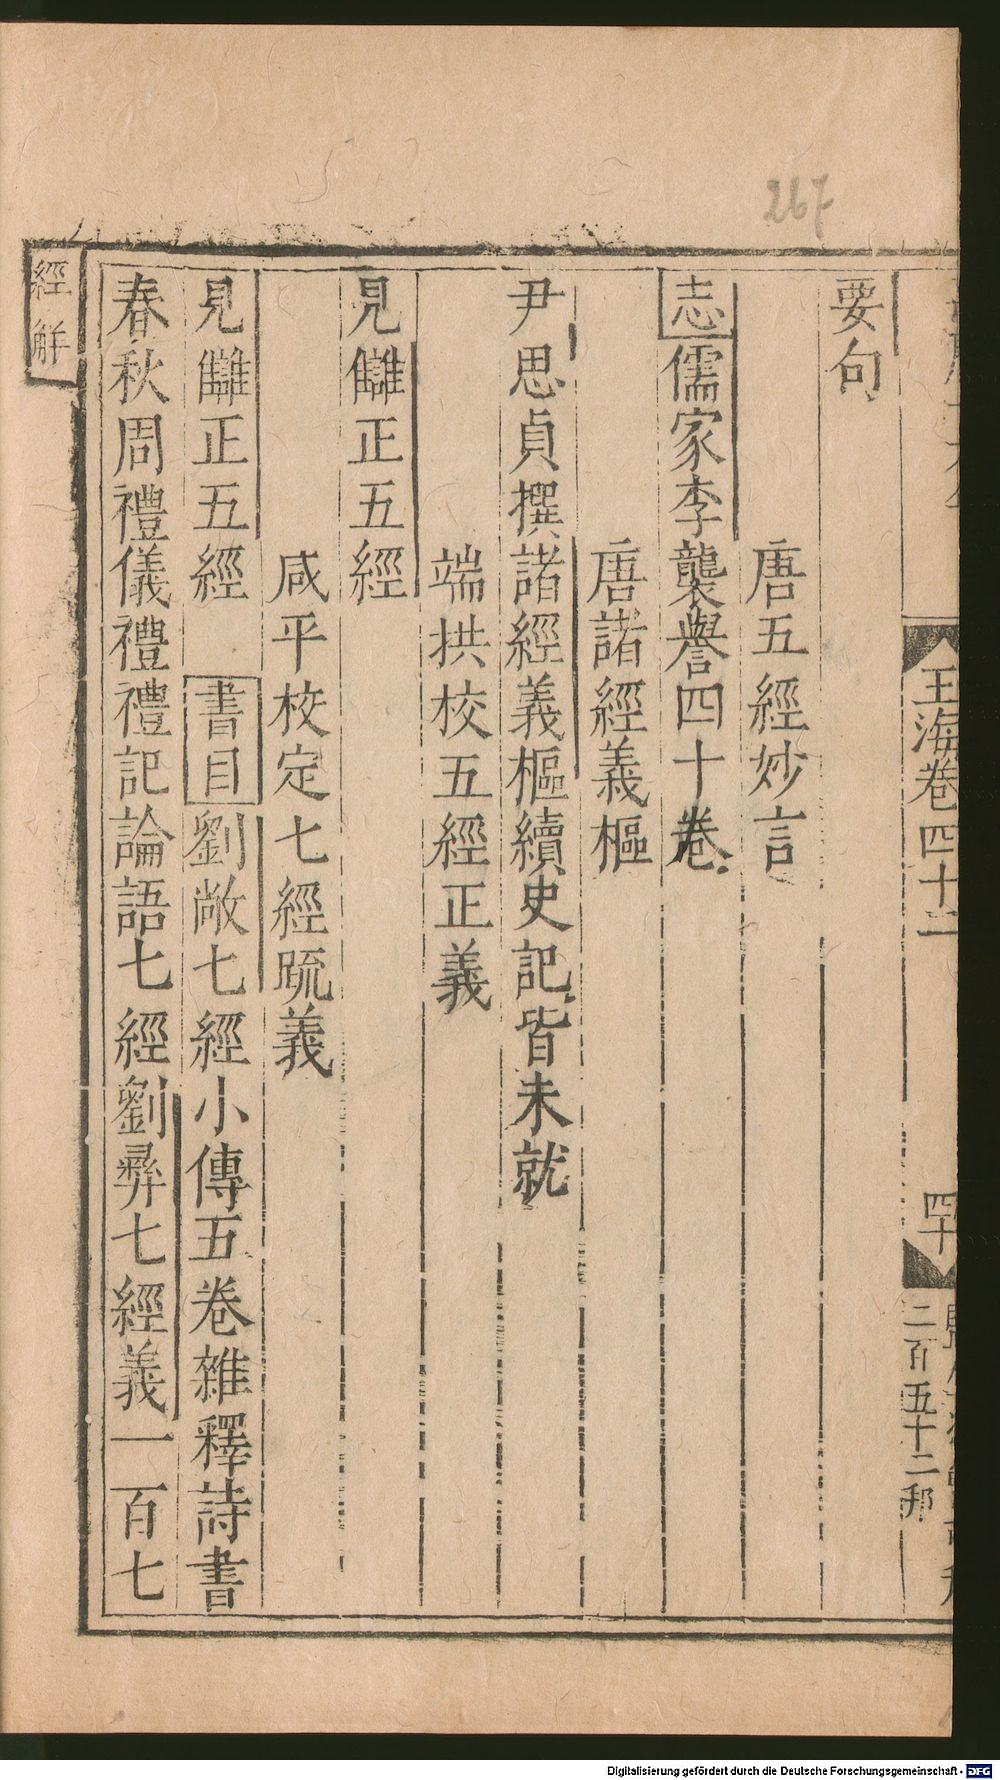 267
要句
唐五經妙言
志儒家李襲譽四十卷
唐諸經義樞
尹思貞撰諸經義樞續史記皆未就
端拱校五經正義
見讎正五經
咸平校定七經疏義
見讎正五經　書目劉敞七經小傳五卷雜釋詩書
春秋周禮儀禮禮記論語七經劉彝七經義一百七
經解
玉海卷四十二
四十
二百五十二
Digitalisierung gefördert durch die Deutsche Forschungsgemeinschaft - DFG